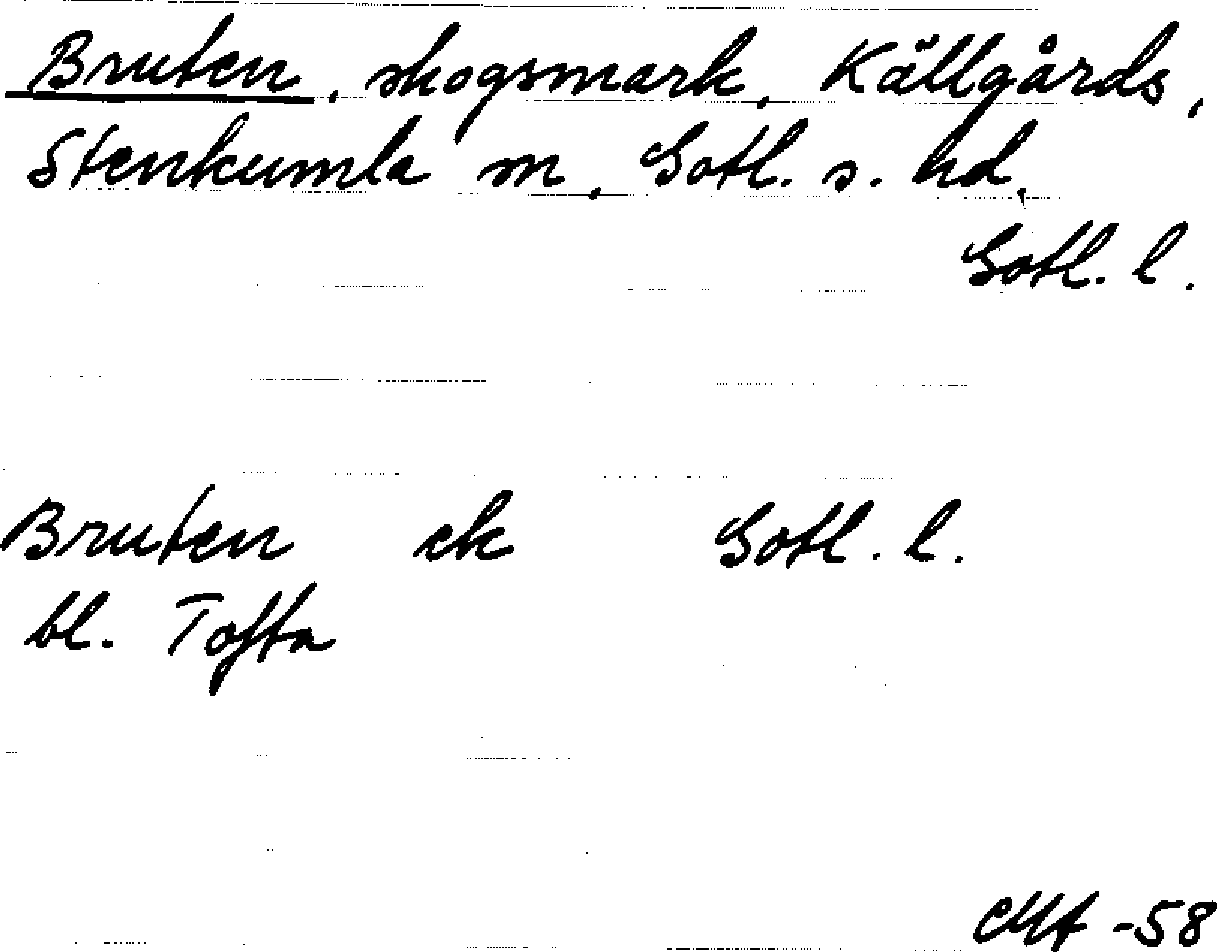 Bruten, skogsmark, Källgårds,
Stenkumla sn, Gotl. s. hd,
Gotl. l.
Bruten ek Gotl. l.
bl. Tofta
-58